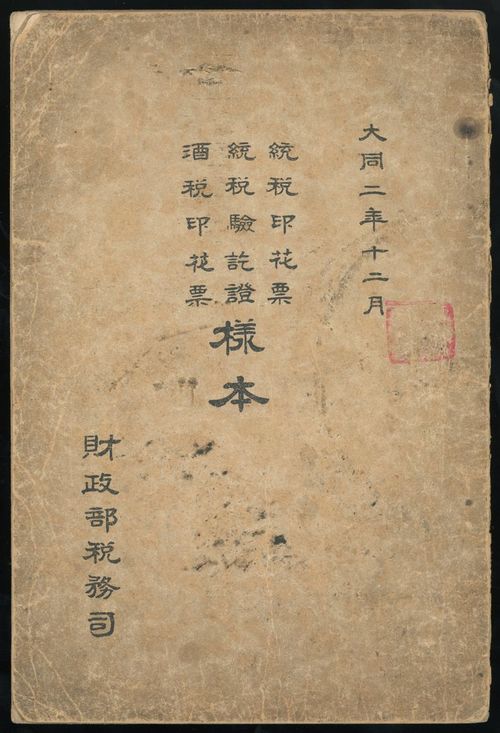 大同二年十二月
統税印花票
統税驗訖證
酒税印花票
樣本
財政部税務司